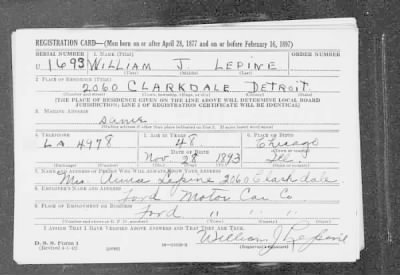 REGISTRATION CARD—(Men born on or after April 28, 1877 and on or before February 16, 1897)
SERIAL NUMBER 1. NAME (Print) ORDER NUMBER
U 1693 WILLIAM J LEPINE
(First) (Middle) (Last)
2. PLACE OF RESIDENCE (Print)
2060 CLARKDALE DETROIT
(Number and street) (Town, township, village, or city) (County) (State)
[THE PLACE OF RESIDENCE GIVEN ON THE LINE ABOVE WILL DETERMINE LOCAL BOARD
JURISDICTION; LINE 2 OF REGISTRATION CERTIFICATE WILL BE IDENTICAL]
3. MAILING ADDRESS
Same
[Mailing address if other than place indicated on line 2. If same insert word same]
4. TELEPHONE 5. AGE IN YEARS 6. PLACE OF BIRTH
LA 4978 48 Chicago
DATE OF BIRTH (Town or county)
Nov 28 1893 Ill
(Exchange) (Number) (Mo.) (Day) (Yr.) (State or country)
7. NAME AND ADDRESS OF PERSON WHO WILL ALWAYS KNOW YOUR ADDRESS
Mrs. Anna Lepine 2060 Clarkdale
8. EMPLOYER'S NAME AND ADDRESS
Ford Motor Car Co
9. PLACE OF EMPLOYMENT OR BUSINESS
Ford " " "
(Number and street or R. F. D. number) (Town) (County) (State)
I AFFIRM THAT I HAVE VERIFIED ABOVE ANSWERS AND THAT THEY ARE TRUE.
D. S. S. Form 1 William J Lepine
(Revised 4-1-42) (over)